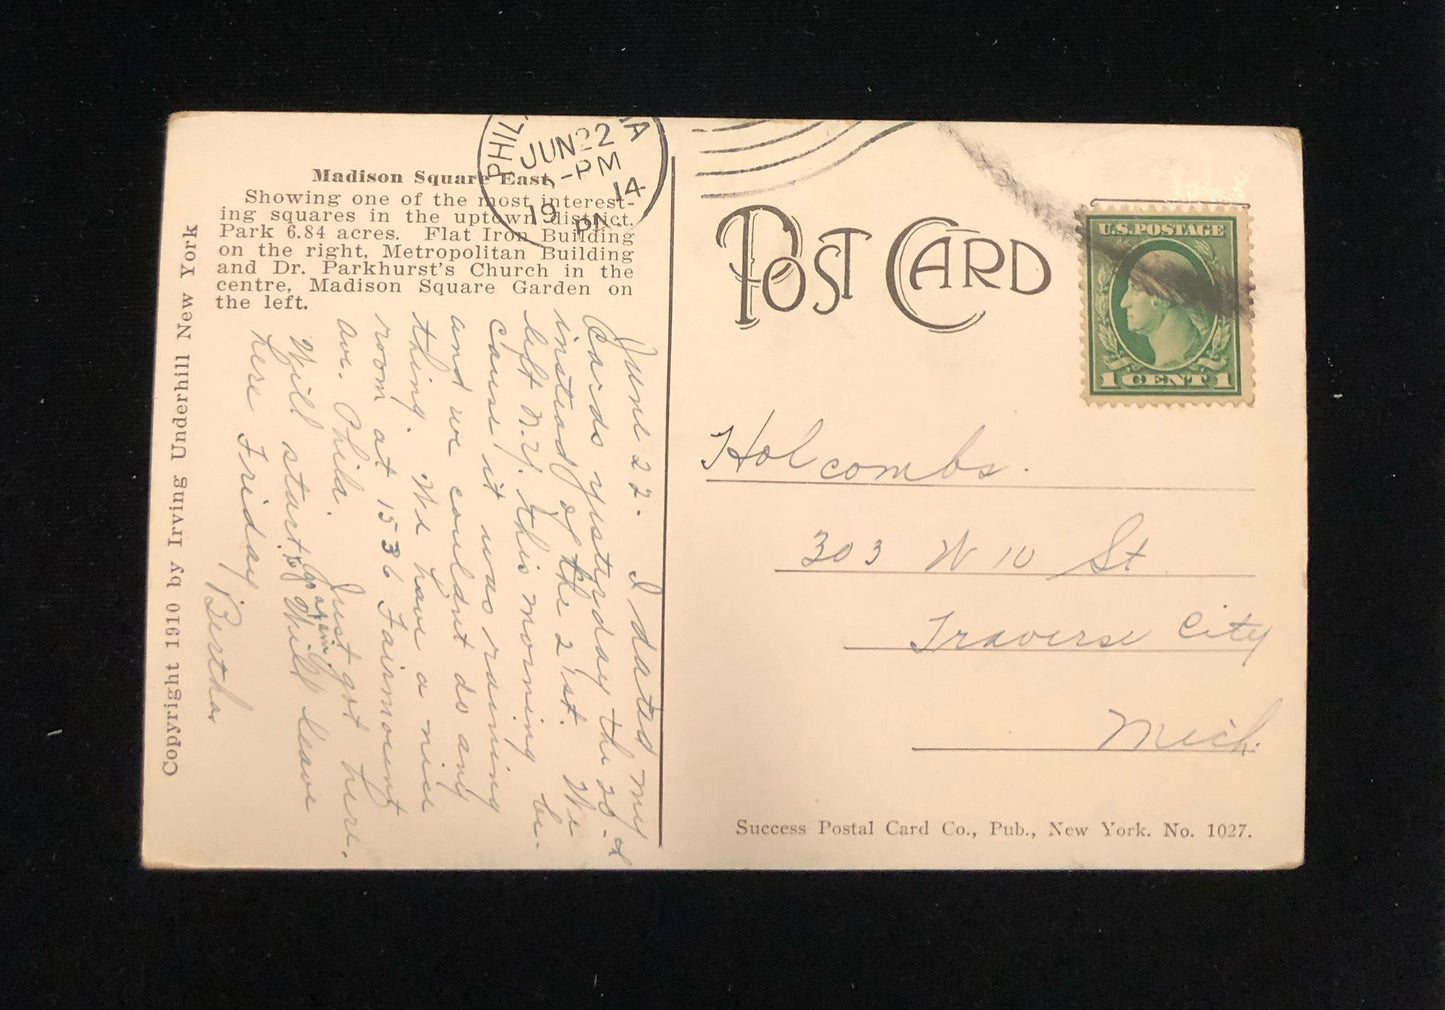 Madison Square East,
Showing one of the most interest-
ing squares in the uptown district.
Park 6.84 acres. Flat Iron Building
on the right, Metropolitan Building
and Dr. Parkhurst's Church in the
centre, Madison Square Garden on
the left.
Copyright 1910 by Irving Underhill New York
June 22. I dated my
Cards yesterday the 20 -
instead of the 21st. We
left N.Y. this morning be-
cause it was raining
and we couldnt do any
thing. We have a nice
room at 1536 Fairmount
ave. Phila. Just got here.
Will start to go again Will leave
here Friday
Bertha.
PHIL
JUN 22
-PM
19 14
PA.
POST CARD
U.S. POSTAGE
1 CENT 1
Holcombs.
303 W 10 St
Traverse City
Mich.
Success Postal Card Co., Pub., New York. No. 1027.